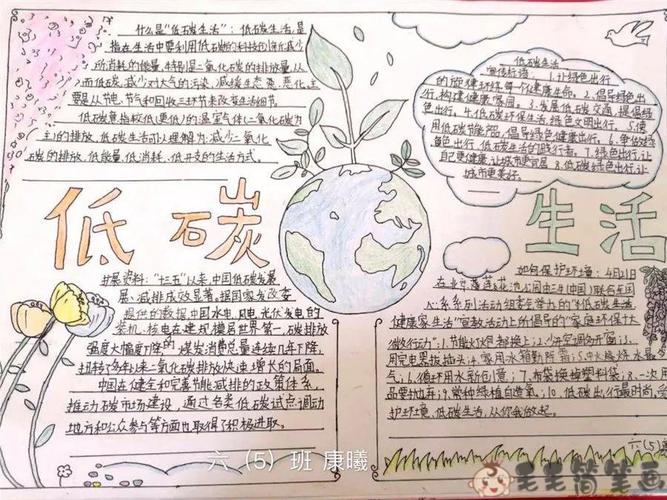 什么是"低碳生活"：低碳生活是
指在生活中要利用低碳的科技创新低减少
所消耗的能量,特别是二氧化碳的排放量从
而低碳,减少对大气的污染,减缓生态恶化主
要是从节电、节气和回收三环节来改变生活细节
低碳意指较低(更低)的温室气体(二氧化碳为
主)的排放,低碳生活可以理解为:减少二氧化
碳的排放,低能量、低消耗、低开支的生活方式。
低碳生活
宣传标语：1.让绿色出行
的旋律环绕每个健康生命。2.倡导绿色出
行,构建健康家园。3.发展低碳交通,提倡绿
色出行。4.低碳环保生活,绿色文明出行。5.使
用低碳节能,倡导绿色健康出行。6.争做
绿色出行,低碳生活的践行者。7.绿色出行,让
自己更健康,让城市更宜居。8.低碳绿色出行,让
城市更美好。
低碳
生活
扩展资料："十三五"以来,中国低碳发展
、减排成效显著。据国家发改委
提供的数据,中国水电、风电、光伏发电的
装机、核电在建规模居世界第一,碳排放
强度大幅度下降。煤炭消费总量连续几年下降,
扭转了多年来二氧化碳快速增长的局面。
中国在健全和完善节能减排的政策体系,
推动碳市场建设,通过各类低碳试点调动
地方和公众参与等方面也取得了积极进取。
如何保护环境：4月21日
在北京莲花池公园
系列活动组委会
健康家生活"宣教活动上所倡导的"家庭环保十
微行动"：1.节能灯火都换上；2.外开空调勿开窗；3.
用完电器拔插头；4.家用水箱勤所需；5.
气；6.循环用水新创意；7.布袋换掉塑料袋；8.一次用
品要抗拒；9.常种绿植自造氧；10.低碳出行最时尚。
护环境、低碳生活,从你我做起。
六(5)
六（5）班 康曦
毛毛简笔画